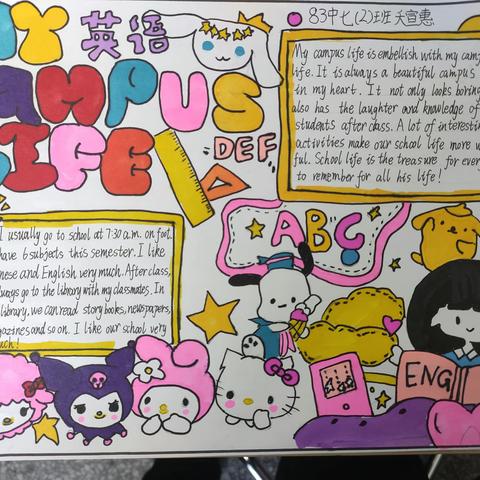 MY
英语
CAMPUS
LIFE
DEF
83中七(2)班 关宣惠
My campus life is embellish with my camp
life. It is always a beautiful campus
in my heart. It not only looks boring
also has the laughter and knowledge of
students after class. A lot of interestin
activities make our school life more w
ful. School life is the treasure for ever
to remember for all his life!
ABC
I usually go to school at 7:30 a.m. on foot.
have 6 subjects this semester. I like
nese and English very much. After class,
always go to the library with my classmates. In
library, we can read story books, newspapers,
agazines and so on. I like our school very
uch!
ENG